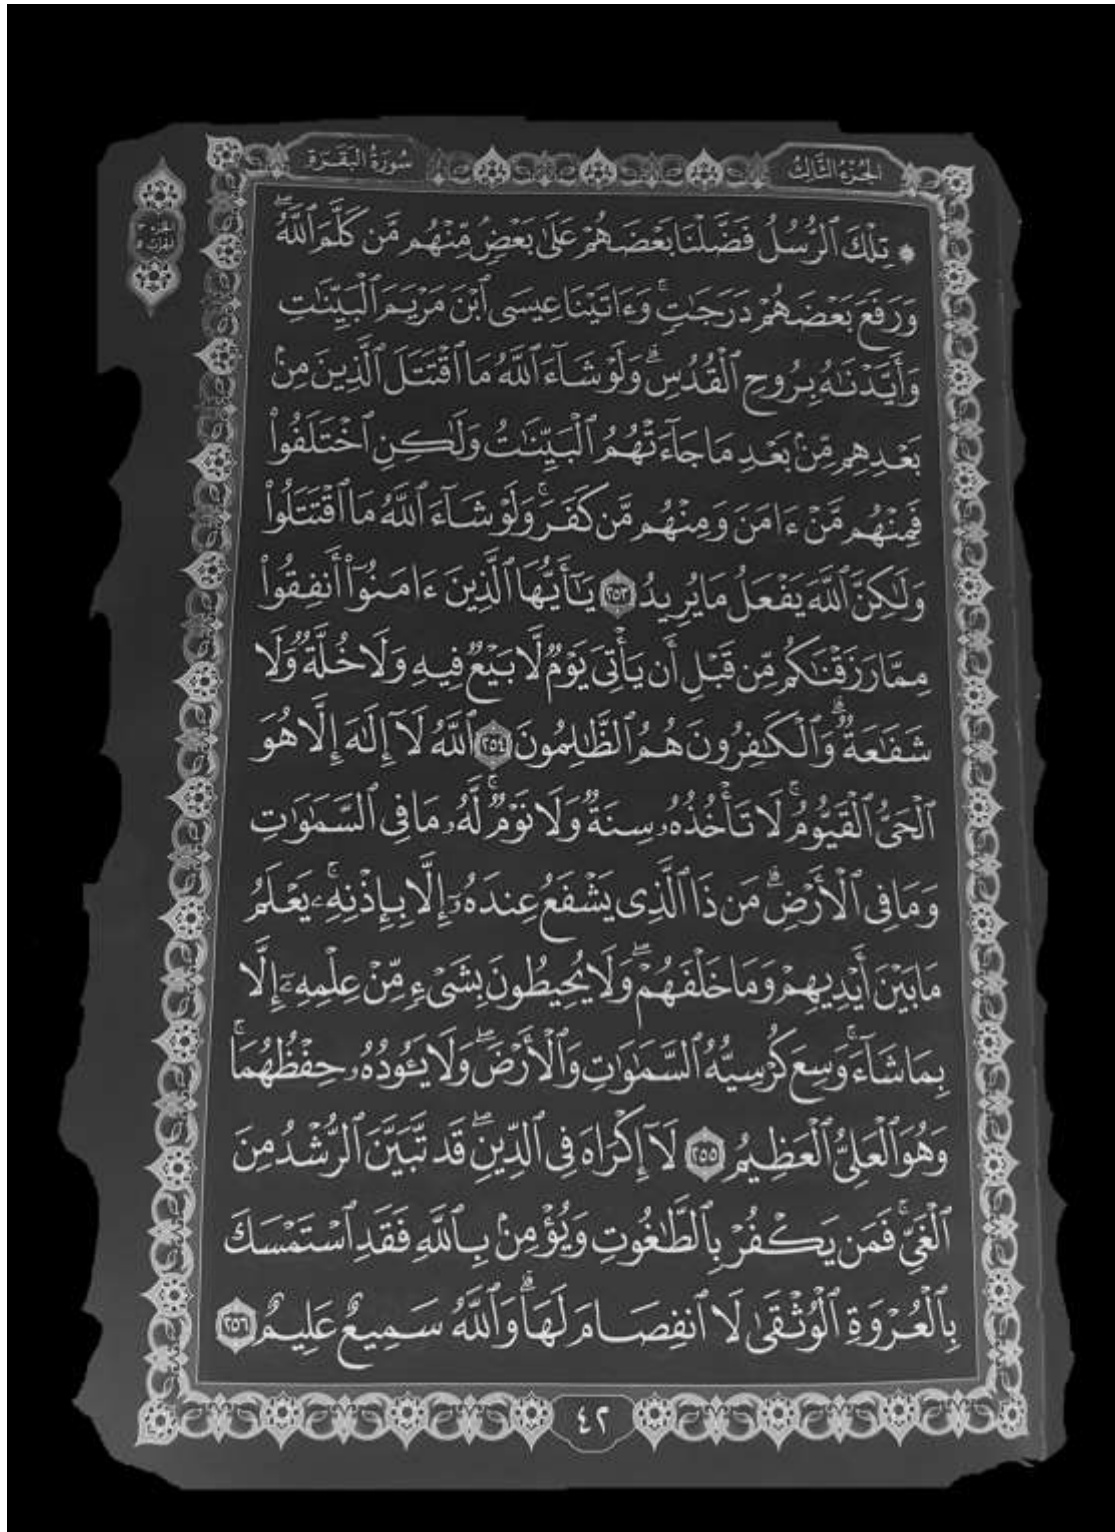 الجزء الثالث
سورة البقرة
۞ تِلْكَ ٱلرُّسُلُ فَضَّلْنَا بَعْضَهُمْ عَلَىٰ بَعْضٍ مِّنْهُم مَّن كَلَّمَ ٱللَّهُۖ
وَرَفَعَ بَعْضَهُمْ دَرَجَٰتٍۚ وَءَاتَيْنَا عِيسَى ٱبْنَ مَرْيَمَ ٱلْبَيِّنَٰتِ
وَأَيَّدْنَٰهُ بِرُوحِ ٱلْقُدُسِۗ وَلَوْ شَآءَ ٱللَّهُ مَا ٱقْتَتَلَ ٱلَّذِينَ مِنۢ
بَعْدِهِم مِّنۢ بَعْدِ مَا جَآءَتْهُمُ ٱلْبَيِّنَٰتُ وَلَٰكِنِ ٱخْتَلَفُوا۟
فَمِنْهُم مَّنْ ءَامَنَ وَمِنْهُم مَّن كَفَرَۚ وَلَوْ شَآءَ ٱللَّهُ مَا ٱقْتَتَلُوا۟
وَلَٰكِنَّ ٱللَّهَ يَفْعَلُ مَا يُرِيدُ ٢٥٣ يَٰٓأَيُّهَا ٱلَّذِينَ ءَامَنُوٓا۟ أَنفِقُوا۟
مِمَّا رَزَقْنَٰكُم مِّن قَبْلِ أَن يَأْتِىَ يَوْمٌ لَّا بَيْعٌ فِيهِ وَلَا خُلَّةٌ وَلَا
شَفَٰعَةٌۗ وَٱلْكَٰفِرُونَ هُمُ ٱلظَّٰلِمُونَ ٢٥٤ ٱللَّهُ لَآ إِلَٰهَ إِلَّا هُوَ
ٱلْحَىُّ ٱلْقَيُّومُۚ لَا تَأْخُذُهُۥ سِنَةٌ وَلَا نَوْمٌۚ لَّهُۥ مَا فِى ٱلسَّمَٰوَٰتِ
وَمَا فِى ٱلْأَرْضِۗ مَن ذَا ٱلَّذِى يَشْفَعُ عِندَهُۥٓ إِلَّا بِإِذْنِهِۦۚ يَعْلَمُ
مَا بَيْنَ أَيْدِيهِمْ وَمَا خَلْفَهُمْۖ وَلَا يُحِيطُونَ بِشَىْءٍ مِّنْ عِلْمِهِۦٓ إِلَّا
بِمَا شَآءَۚ وَسِعَ كُرْسِيُّهُ ٱلسَّمَٰوَٰتِ وَٱلْأَرْضَۖ وَلَا يَـُٔودُهُۥ حِفْظُهُمَاۚ
وَهُوَ ٱلْعَلِىُّ ٱلْعَظِيمُ ٢٥٥ لَآ إِكْرَاهَ فِى ٱلدِّينِۖ قَد تَّبَيَّنَ ٱلرُّشْدُ مِنَ
ٱلْغَىِّۚ فَمَن يَكْفُرْ بِٱلطَّٰغُوتِ وَيُؤْمِنۢ بِٱللَّهِ فَقَدِ ٱسْتَمْسَكَ
بِٱلْعُرْوَةِ ٱلْوُثْقَىٰ لَا ٱنفِصَامَ لَهَاۗ وَٱللَّهُ سَمِيعٌ عَلِيمٌ ٢٥٦
٤٢